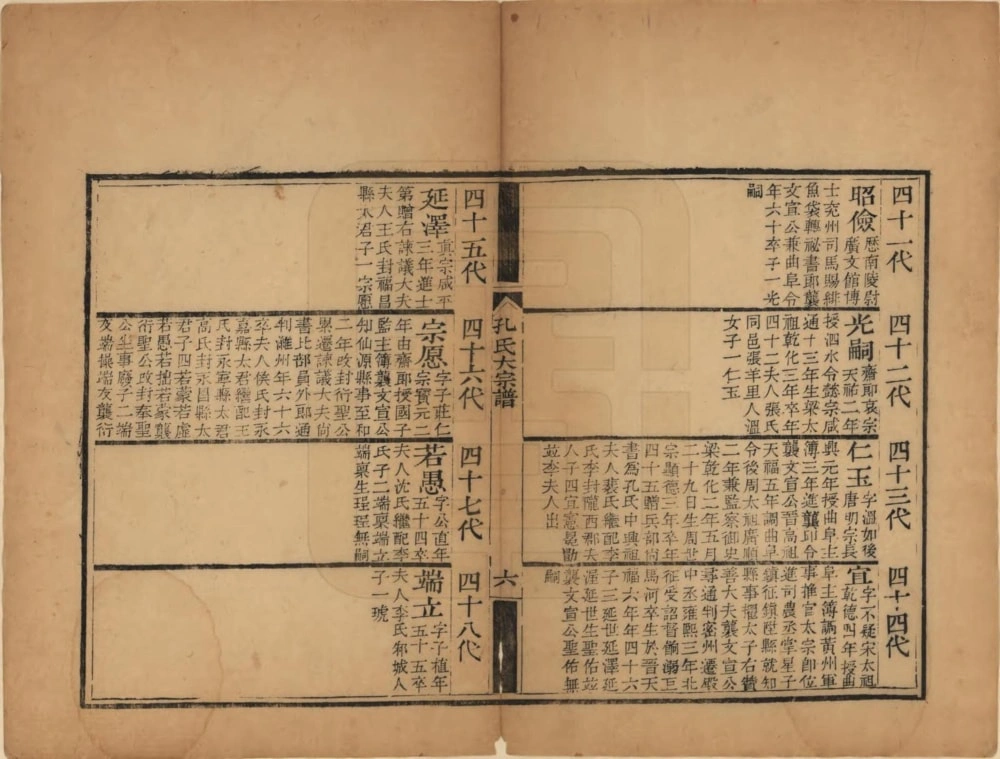 四十一代
昭儉 歷南陵尉
廣文館博
士兖州司馬賜緋
魚袋轉祕書郎襲
文宣公兼曲阜令
年六十卒子一光
嗣
四十二代
光嗣 齋郎哀宗
天祐二年
授泗水令懿宗咸
通十三年生梁太
祖乾化三年卒年
四十二夫人張氏
同邑張羊里人溫
女子一仁玉
四十三代
仁玉 字溫如後
唐明宗長
興元年授曲阜主
簿三年進襲卭令
襲文宣公晉高祖
天福五年調曲阜
令後周太祖廣順
二年兼監察御史
梁乾化二年五月
二十九日生周世
宗顯德三年卒年
四十五贈兵部尙
書爲孔氏中興祖
夫人裴氏繼配李
氏李封隴西郡夫
人子四宜憲冕勖
並李夫人出
四十四代
宜 字不疑宋太祖
乾德四年授曲
阜主簿調黃州軍
事推官太宗卽位
進司農丞掌星子
鎮征鎮陞縣就知
縣事擢太子右贊
善大夫襲文宣公
尋通判密州遷殿
中丞雍熙三年北
征受詔督餉溺巨
馬河卒生於晉天
福六年年四十六
子三延世延澤延
渥延世生聖佑並
襲文宣公聖佑無
嗣
孔氏大宗譜
六
四十五代
延澤 真宗咸平
三年進士
第贈右諫議大夫
夫人王氏封福昌
縣太君子一宗愿
四十六代
宗愿 字子莊仁
宗寶元二
年由齋郎授國子
監主簿襲文宣公
知仙源縣事至和
二年改封衍聖公
累遷諫議大夫尙
書比部員外郎通
判濰州年六十六
卒夫人侯氏封永
嘉縣太君繼配王
氏封永壽縣太君
高氏封永昌縣太
君子四若蒙若虛
若愚若拙若蒙襲
衍聖公改封奉聖
公坐事廢子二端
友端操端友襲衍
四十七代
若愚 字公直年
五十四卒
夫人沈氏繼配李
氏子二端稟端立
端稟生理理無嗣
四十八代
端立 字子植年
五十五卒
夫人李氏鄆城人
子一琥